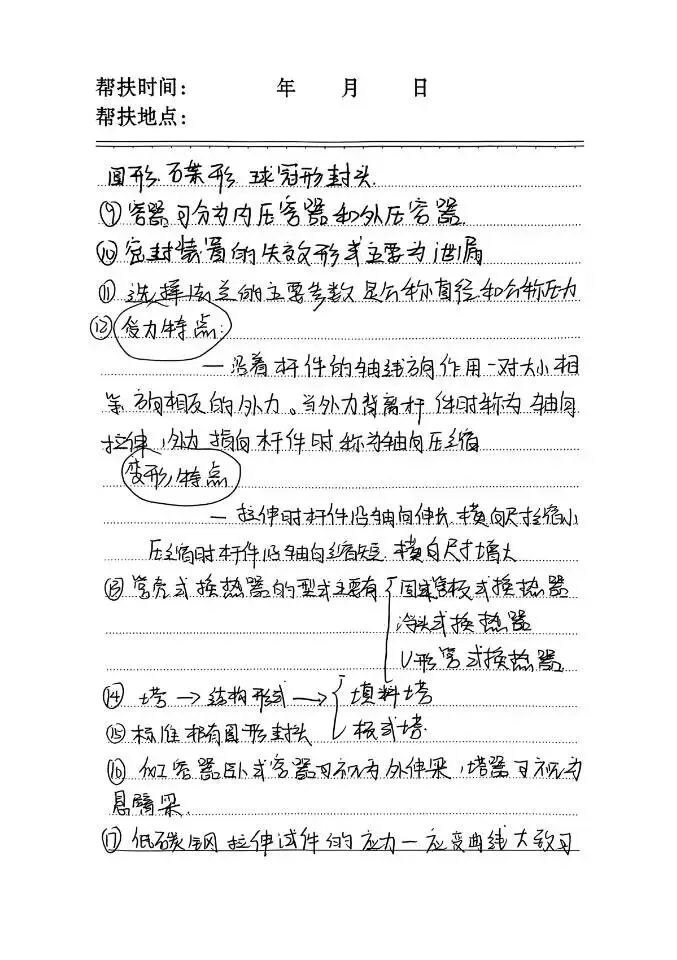 帮扶时间: 年 月 日
帮扶地点:
圆形 碟形 球冠形封头
⑨ 容器可分为内压容器和外压容器
⑩ 密封装置的失效形式主要为泄漏
⑪ 选择法兰的主要参数是公称直径和公称压力
⑫ 受力特点:
— 沿着杆件的轴线方向作用一对大小相
等 方向相反的外力。当外力背离杆件时称为轴向
拉伸,外力指向杆件时称为轴向压缩
变形特点
— 拉伸时杆件沿轴向伸长 横向尺寸缩小
压缩时杆件沿轴向缩短 横向尺寸增大
⑬ 管壳式换热器的型式主要有 固定管板式换热器
浮头式换热器
U形管式换热器
⑭ 塔 → 结构形式 → 填料塔
⑮ 标准椭圆形封头 板式塔
⑯ 化工容器卧式容器可视为外伸梁,塔器可视为
悬臂梁.
⑰ 低碳钢拉伸试件的应力一应变曲线大致可